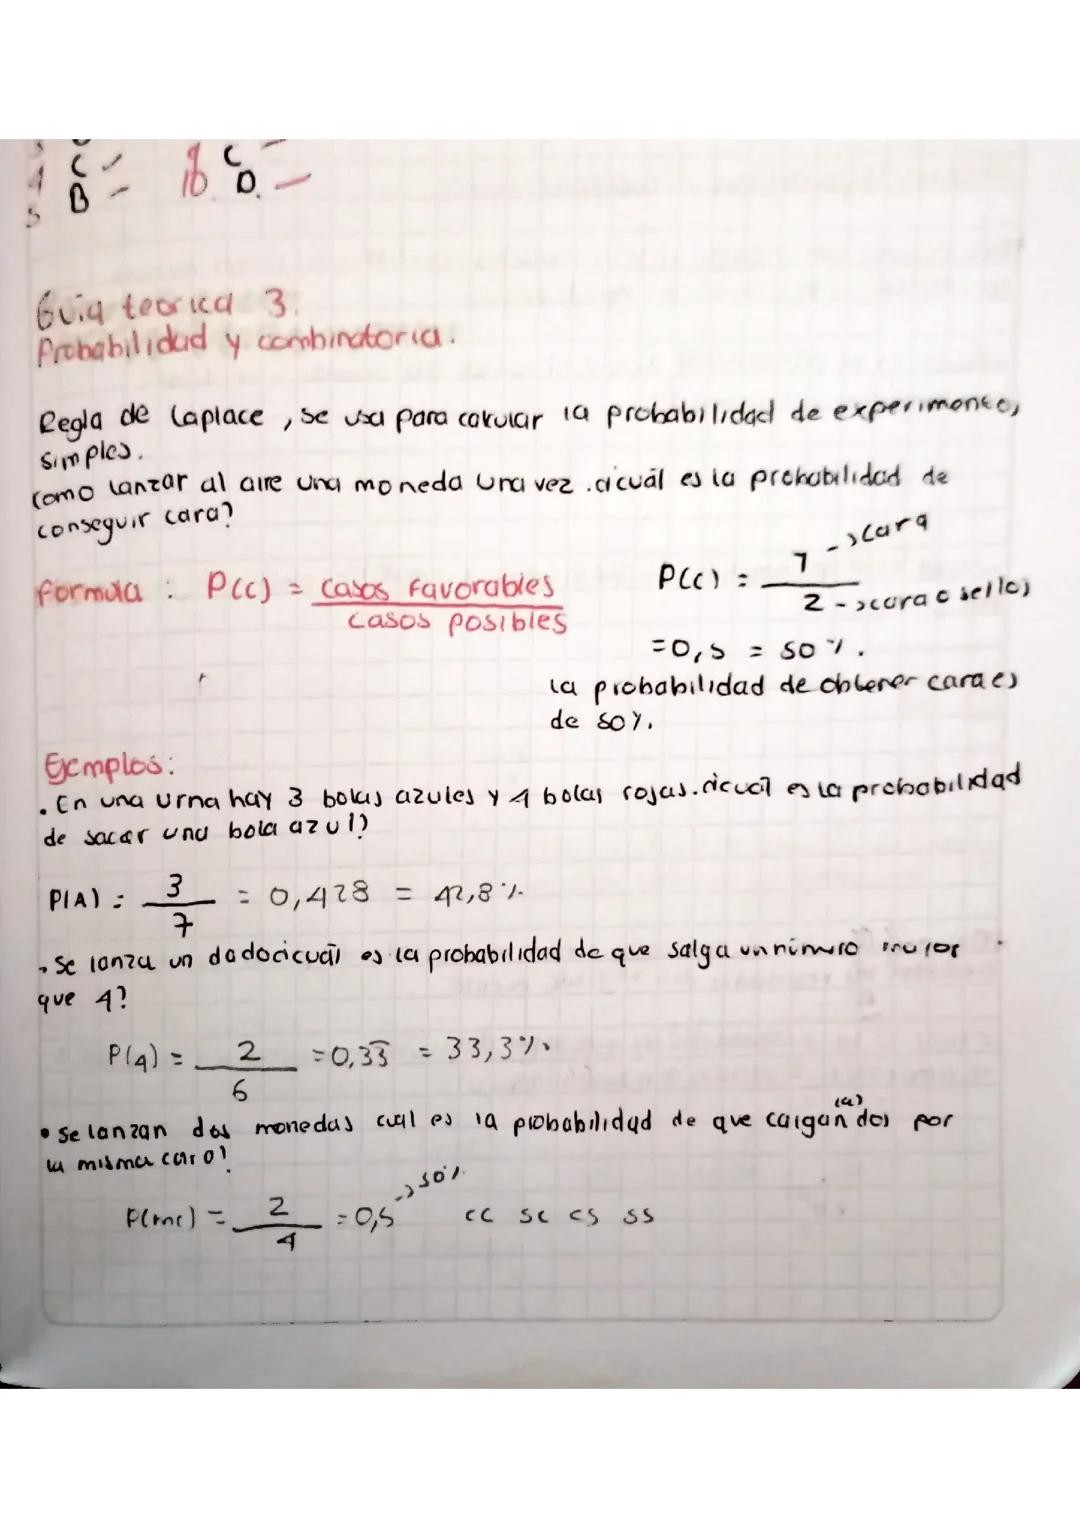 C
B
10.
C
D.
5
Guia teorica 3.
Probabilidad y combinatoria.
Regla de Laplace, se usa para calcular la probabilidad de experimentos
simples.
como lanzar al aire una moneda una vez. ¿cuál es la probabilidad de
conseguir cara?
formula : P(c) = casos favorables
casos posibles
P(c) = 1 -> cara
2 -> cara o sello)
=0,5 = 50%.
la probabilidad de obtener cara es
de 50%.
Ejemplos:
• En una urna hay 3 bolas azules y 4 bolas rojas. ¿cuál es la probabilidad
de sacar una bola azul?
P(A) = 3
7
= 0,428 = 42,8%.
• Se lanza un dado ¿cuál es la probabilidad de que salga un número mayor
que 4?
P(4) = 2
6
=0,33 = 33,3%.
• Se lanzan dos monedas cual es la probabilidad de que caigan dos por
la misma cara?
P(mc) = 2
4
=0,5 -> 50%
cc sc cs ss